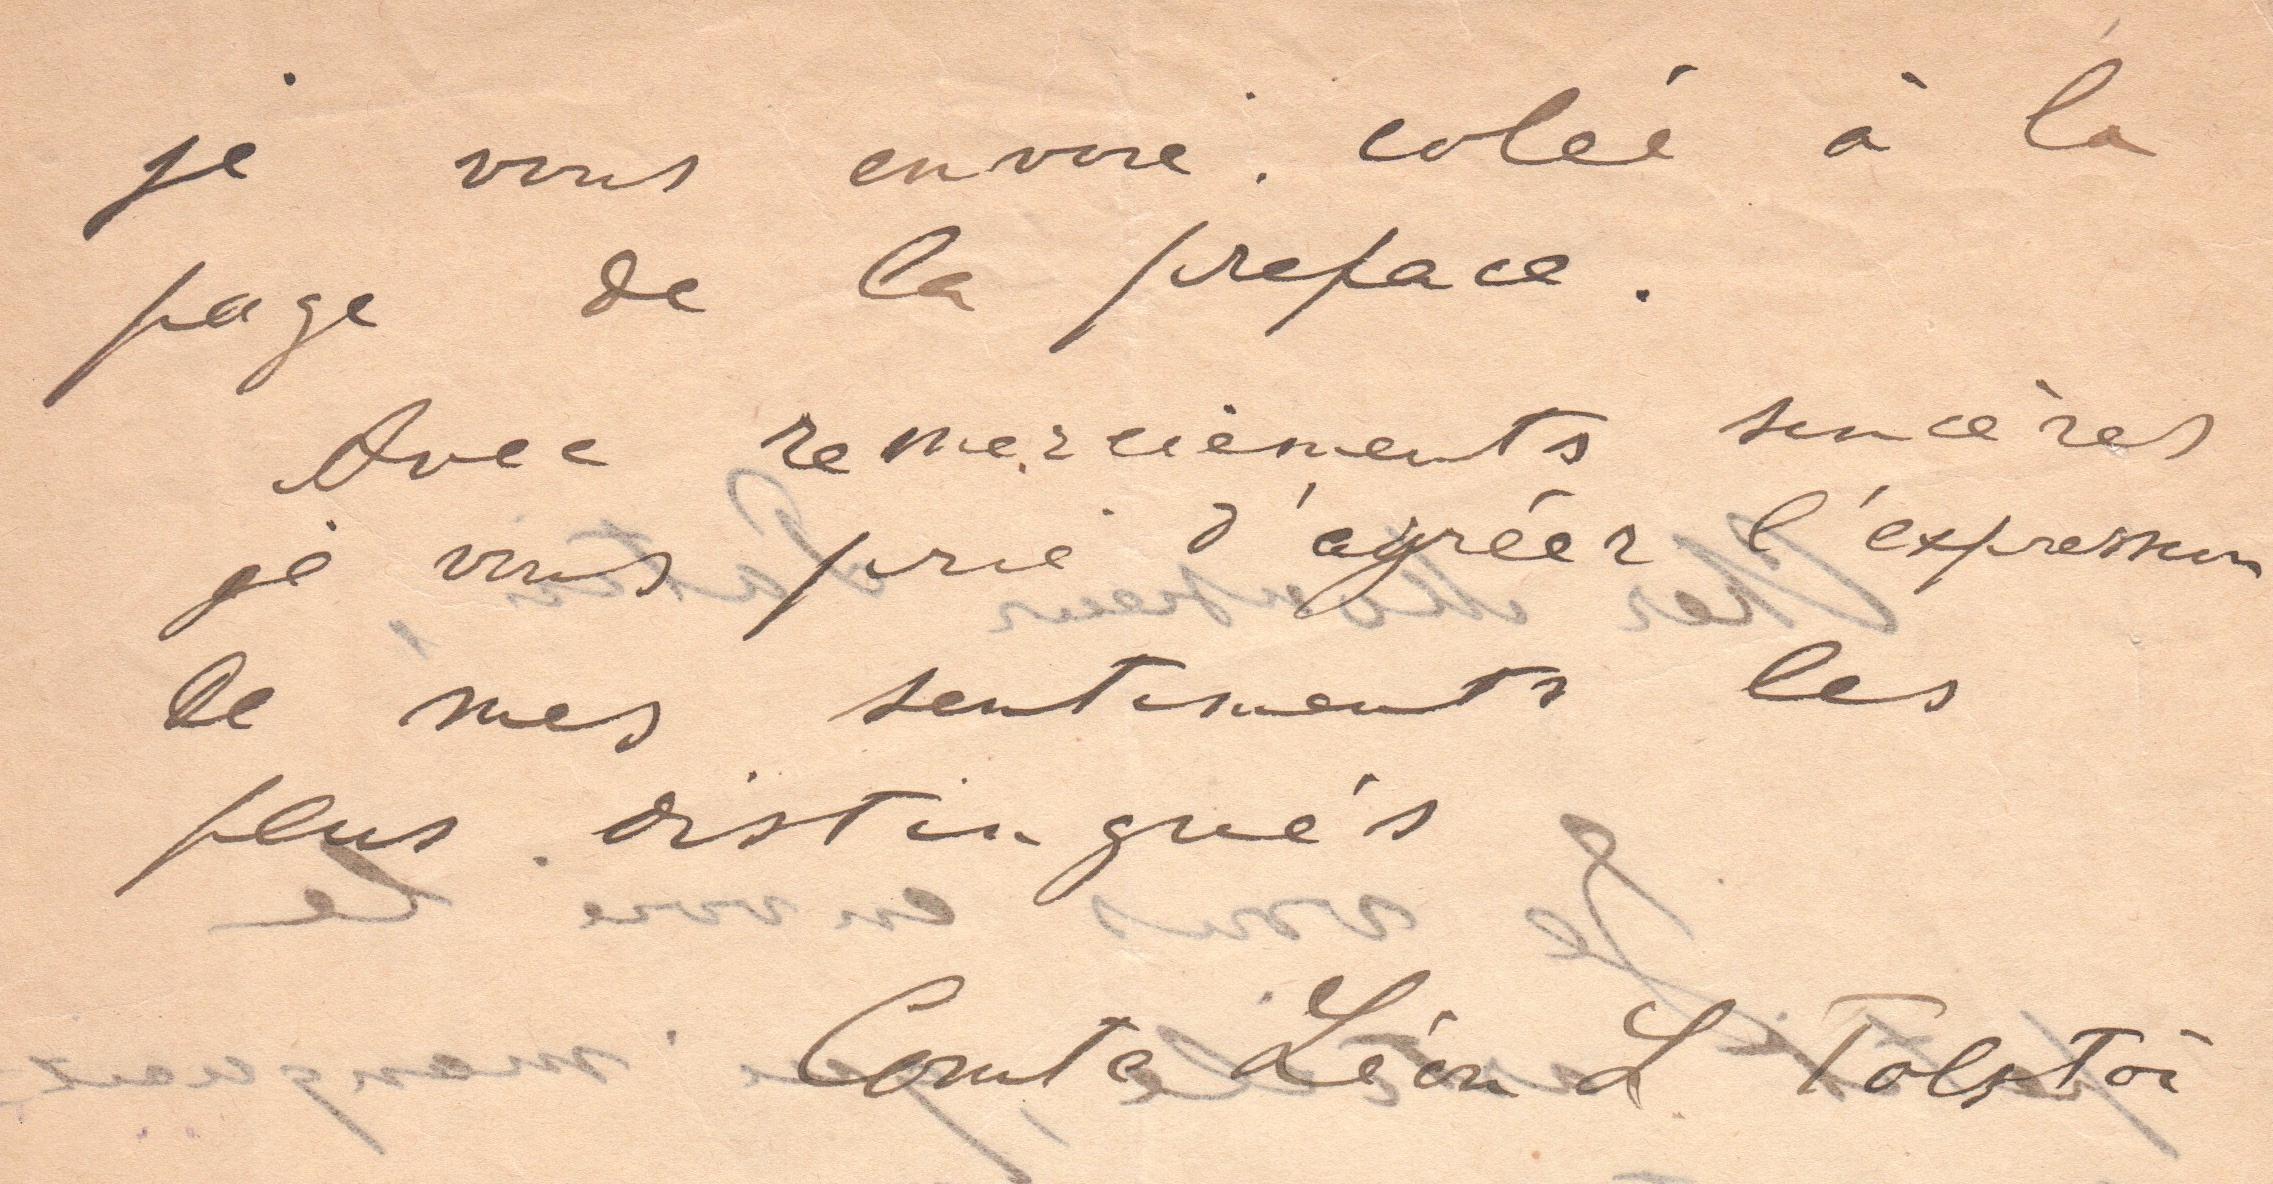 je vous envoie. colée à la
page de la preface.
Avec remerciements sincères
je vous prie d'agréer l'expression
de mes sentiments les
plus distingués
Comte Léon L Tolstoi